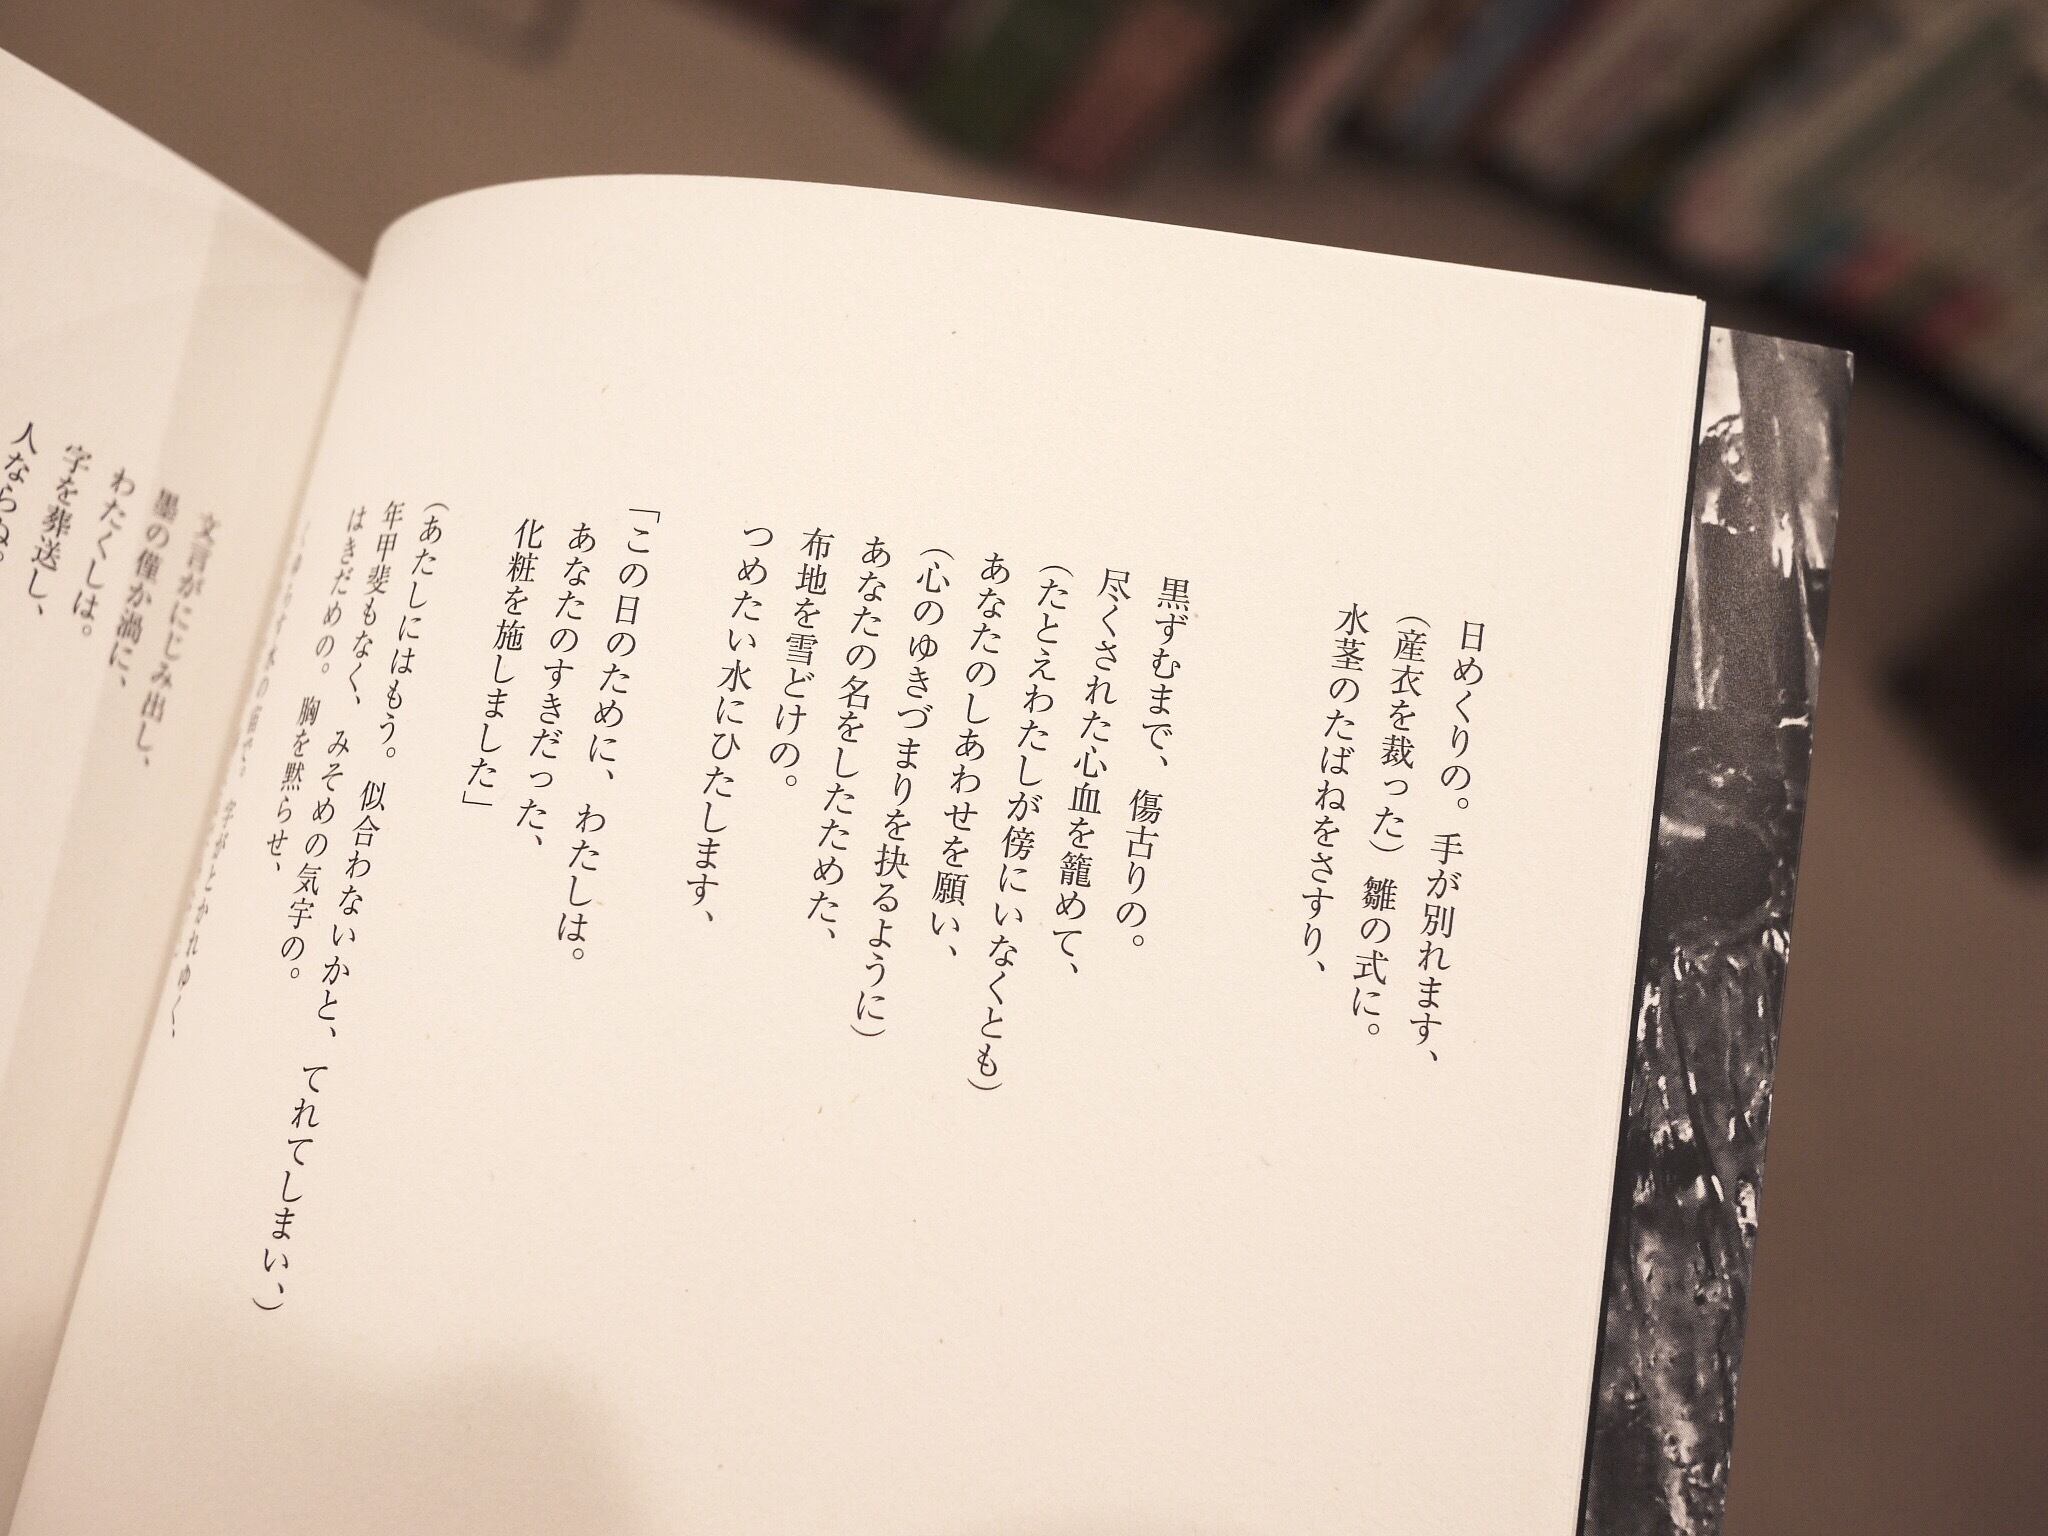 日めくりの。手が別れます、
（産衣を裁った）雛の式に。
水茎のたばねをさすり、
黒ずむまで、傷古りの。
尽くされた心血を籠めて、
（たとえわたしが傍にいなくとも）
あなたのしあわせを願い、
（心のゆきづまりを抉るように）
あなたの名をしたためた、
布地を雪どけの。
つめたい水にひたします、
「この日のために、わたしは。
あなたのすきだった、
化粧を施しました」
（あたしにはもう。似合わないかと、てれてしまい、）
年甲斐もなく、みそめの気字の。
はきだめの。胸を黙らせ、
字がとかれゆく、
文言がにじみ出し、
墨の僅か渦に、
わたくしは。
字を葬送し、
人ならぬ。